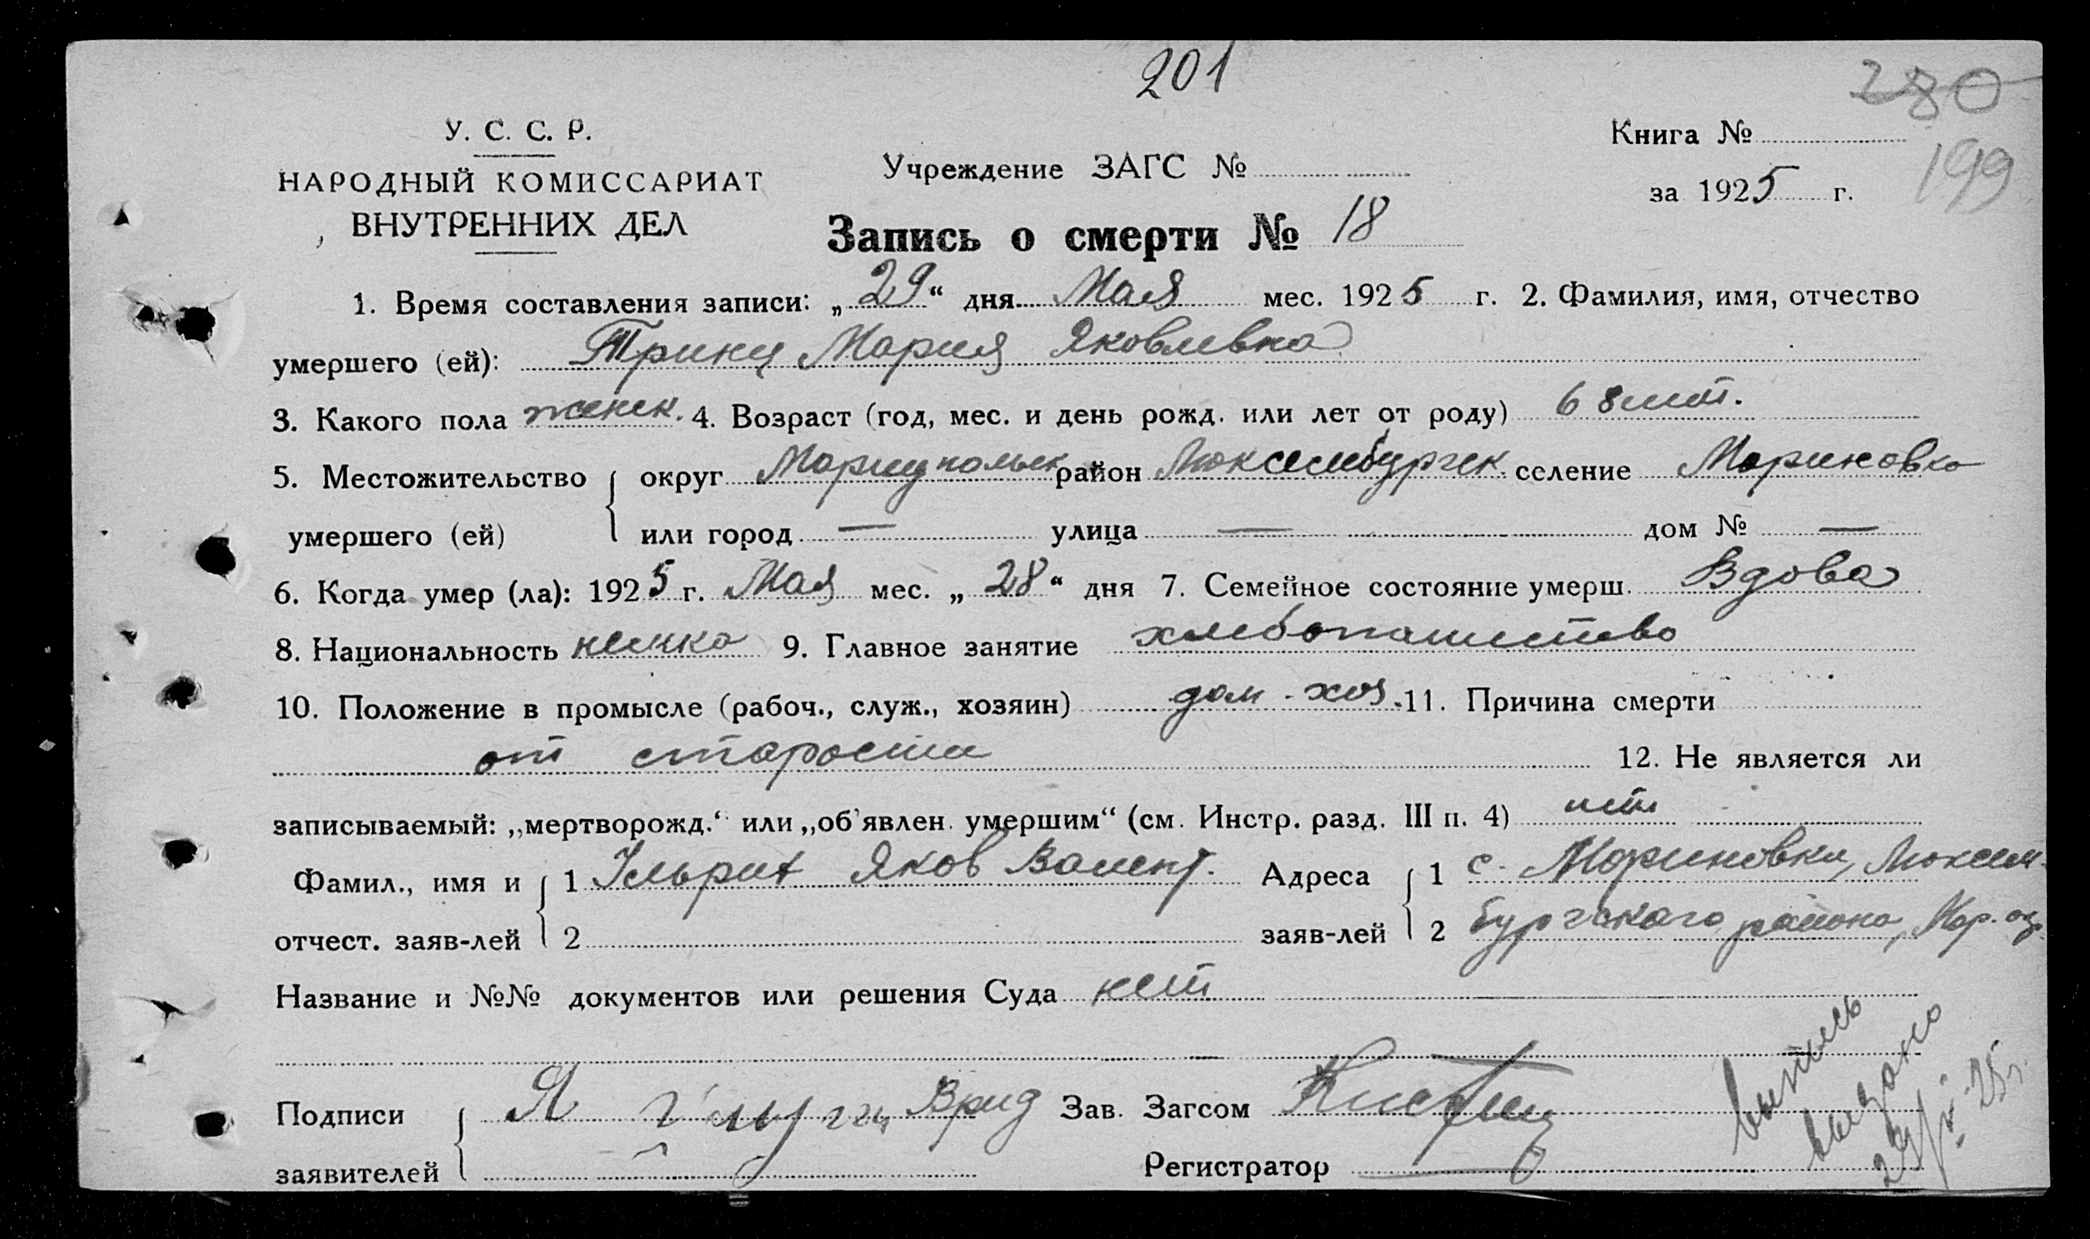 201
280
199
У. С. С. Р.
НАРОДНЫЙ КОМИССАРИАТ
ВНУТРЕННИХ ДЕЛ
Учреждение ЗАГС №
Книга №
за 1925 г.
Запись о смерти № 18
1. Время составления записи: „29“ дня Мая мес. 1925 г. 2. Фамилия, имя, отчество
умершего (ей): Тринц Мария Яковлевна
3. Какого пола женск. 4. Возраст (год, мес. и день рожд. или лет от роду) 68 лет.
5. Местожительство округ Мариупольск район Люксембургск. селение Мариновка
умершего (ей) или город — улица — дом № —
6. Когда умер (ла): 1925 г. Мая мес. „28“ дня 7. Семейное состояние умерш. Вдова
8. Национальность немка 9. Главное занятие хлебопашество
10. Положение в промысле (рабоч., служ., хозяин) дом. хоз. 11. Причина смерти
от старости 12. Не является ли
записываемый: „мертворожд.“ или „об'явлен. умершим“ (см. Инстр. разд. III п. 4) нет
Фамил., имя и 1 Ульрих Яков Валент. Адреса 1 с. Мариновки, Люксем-
отчест. заяв-лей 2 заяв-лей 2 бургского района, Мар. ок.
Название и №№ документов или решения Суда нет
Подписи Я Врид Зав. Загсом
заявителей Регистратор
выпись
выдано